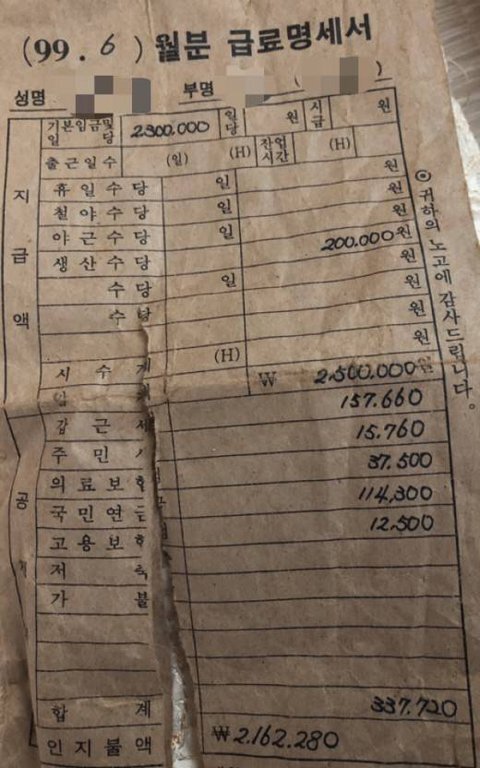 (99. 6) 월분 급료명세서
성명 부명 ( )
기본임금및일당 2300.000 일당 원 시급 원
출근일수 (일) (H) 잔업시간 (H)
지급액
휴일수당 일 원
철야수당 일 원
야근수당 일 원
생산수당 200.000원
수당 일 원
수당 원
원
(H)
시수계 ₩ 2,500,000원
157.660
갑근세 15.760
주민 37.500
의료보험 114,300
국민연금 12.500
고용보험
저축
가불
공
합계 337.720
인지불액 ₩2.162.280
⊙ 귀하의 노고에 감사드립니다.